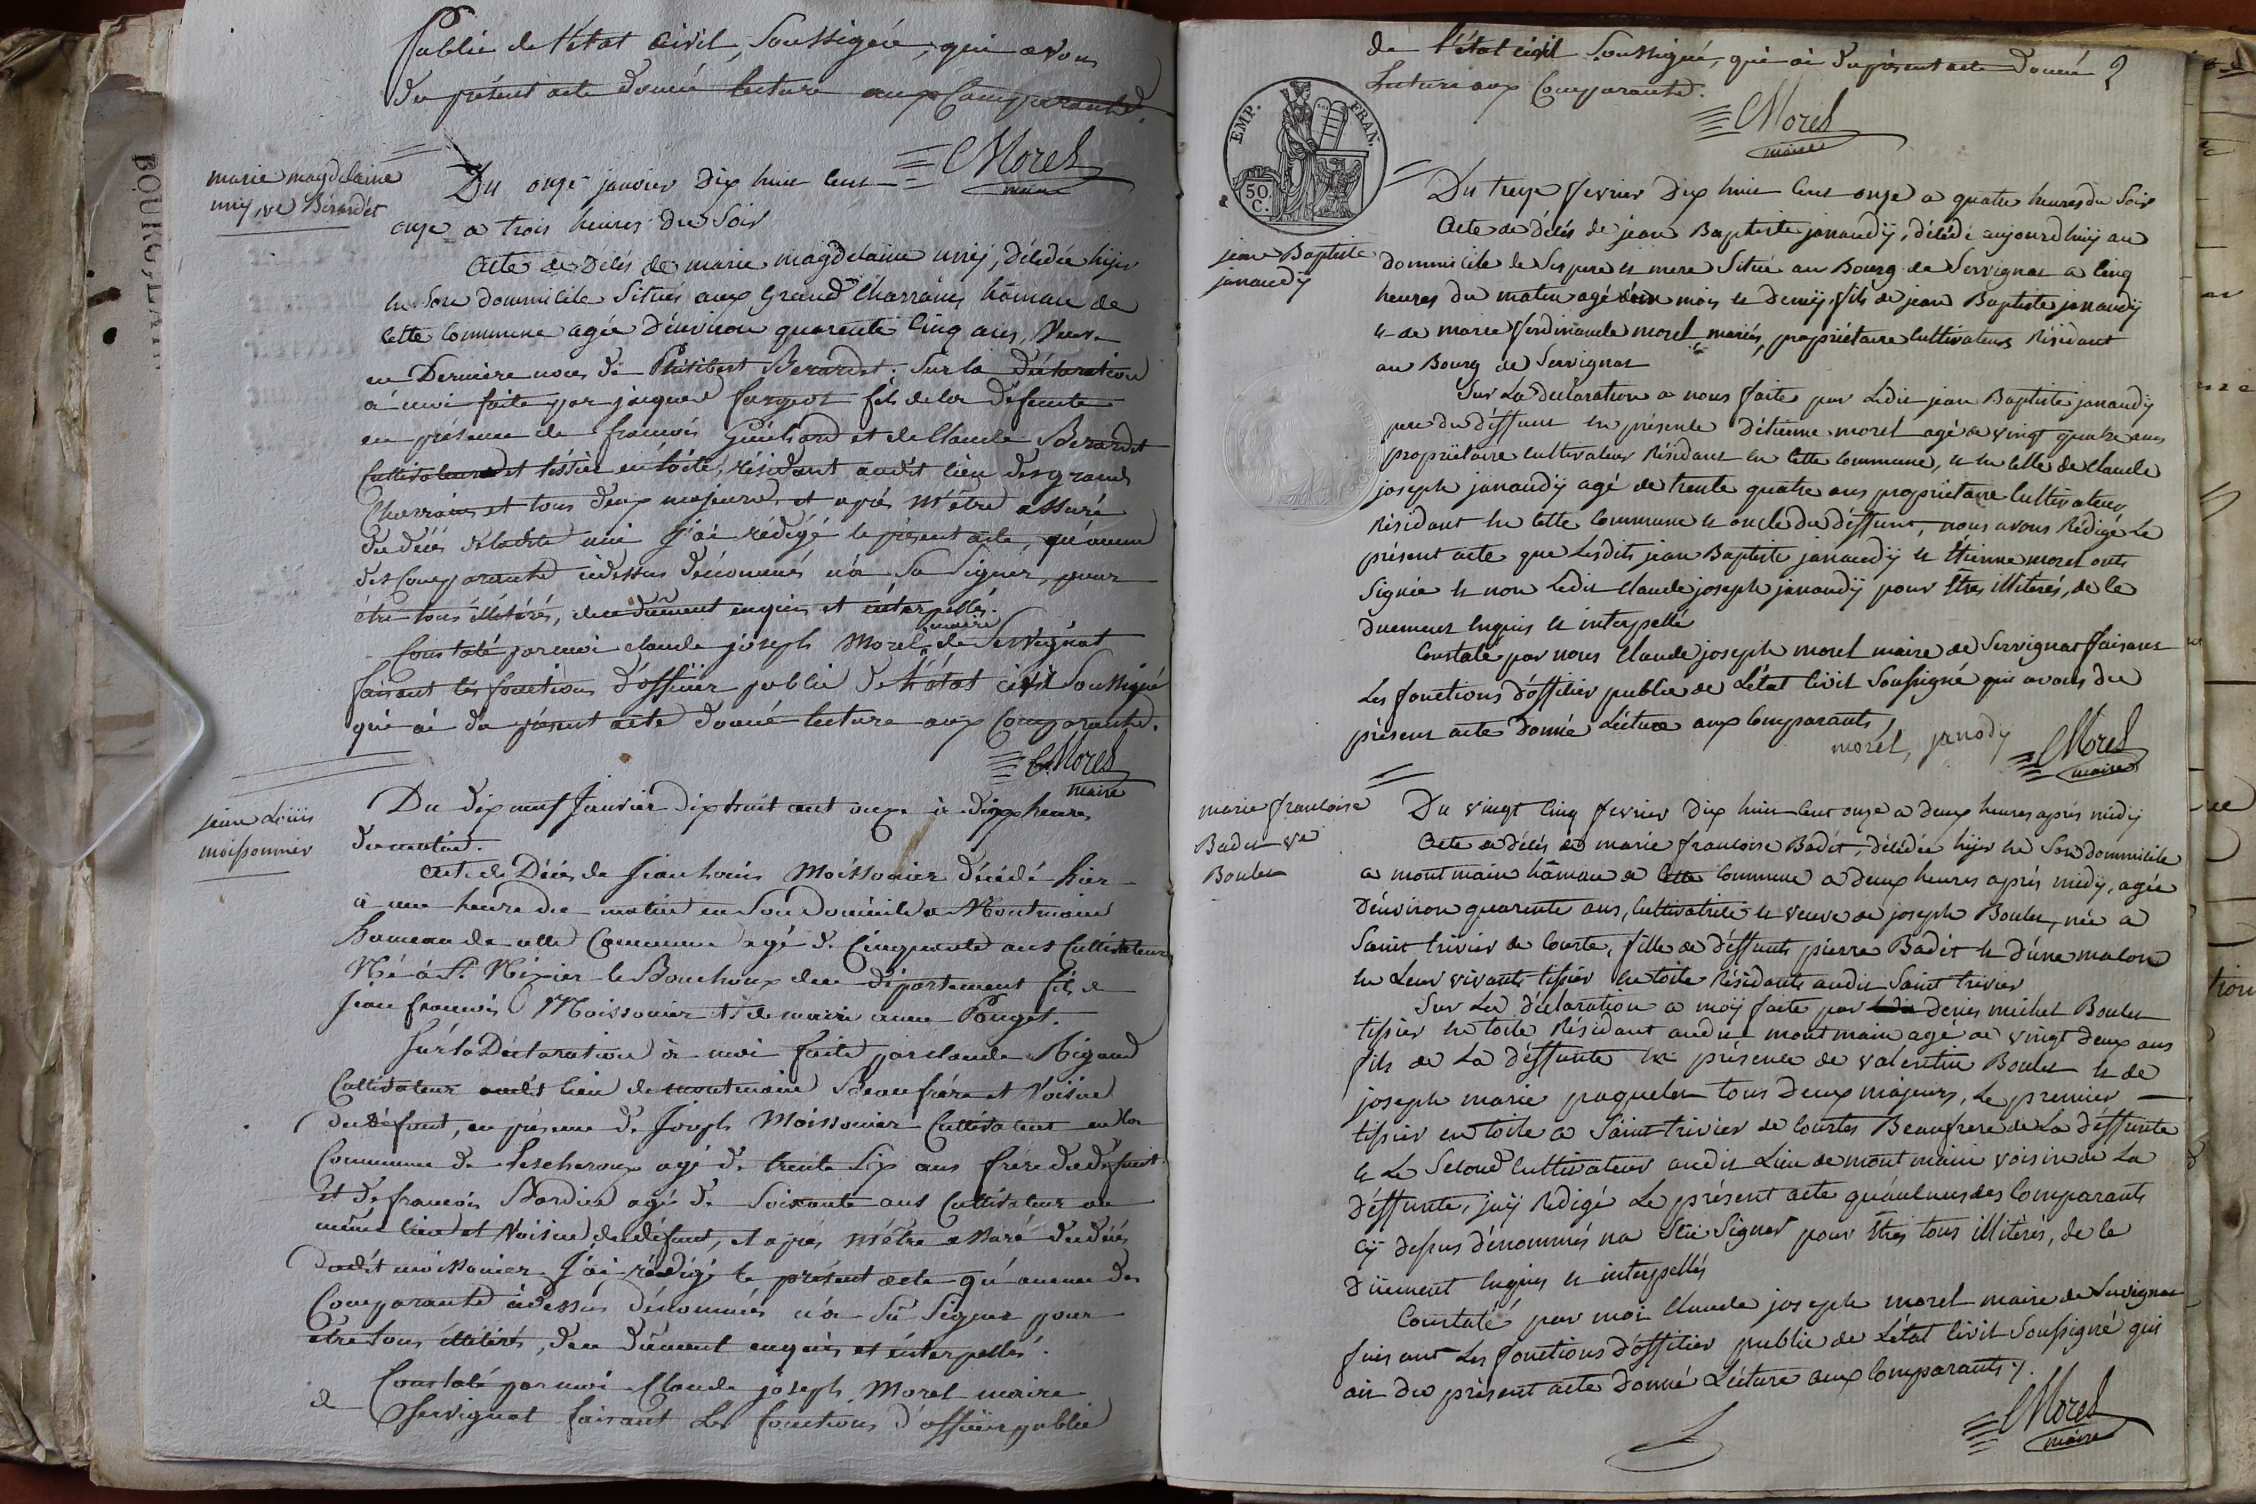 Publié de l'état civil, Soussignée, qui avons
du présent acte donné lecture aux Comparants.
Morel
maire
marie magdelaine
miij ve Bérardet
Du onze janvier dix huit cent
onze a trois heures du Soir
Acte de Délés de marie magdelaine miij, Délédée hijer
en Son dommicile Situés aux Grand Charraines hâmau de
cette Commune agée d'environ quarente cinq ans, veuve
en Dernière noces de Philibert Berardet. Sur la déclaration
à moi faite par jacques fargeot fils de la défunte
en présence de francois Guichard et de Claude Berardet
Cultivateurs et tissier en toile, résidant audit lieu des grands
Charraines et tous deux majeurs, et après m'être assuré
du décès de ladite miii j'ai rédigé le présent acte, qu'aucun
des Comparants cidessus dénommés n'a Su Signer, pour
être tous illitérés, de ce dûment enquis et interpellés.
Constaté par moi claude joseph Morel maire de Servignat
faisant les fonctions d'officier public de l'état civil Soussigné
qui ai du présent acte donné lecture aux Comparants.
Morel
maire
jean Loüis
moissonnier
Du dix neuf Janvier dix huit cent onze à dix heures
du matin.
Acte de Décès de Jean Louis Moissonier décédé hier
à une heure du matin en Son Domicile a Montmain
hameau de cette Commune agé de Cinquante ans Cultivateur
Né à St Nizier le Bouchoux dece département fils de
Jean francois Moissonier et de marie anne Pouget.
Sur la Déclaration à moi faite par claude Rigaud
Cultivateur audit lieu de montmain Beaufrère et Voisin
du défunt, en présence de Joseph Moissonier Cultivateur en la
Commune de Lescheroux agé de trente Six ans frère du défunt
et de francois Nardin agé de Soixante ans Cultivateur au
même lieu et Voisin du défunt, et après m'être assuré du décès
dudit moissonier J'ai rédigé le présent acte qu'aucun des
Comparants cidessus dénommés n'a Sû Signer pour
être tous illitérés, de ce dûment enquis et interpellés.
Constaté par moi Claude joseph Morel maire
de Servignat faisant les fonctions d'officier public
de l'état civil Soussigné, qui ai du présent acte donné
Lecture aux Comparants.
Morel
maire
EMP. FRAN.
50 C.
jean Baptiste
janaudÿ
Du treize fevrier dix huit cent onze a quatre heures du Soir
Acte de délés de jean Baptiste janaudÿ, délédé aujourdhuij au
dommicile de Ses pere et mere Situé au Bourg de Servignat a cinq
heures du matin agé d'un mois et demij, fils de jean Baptiste janaudÿ
et de marie ferdinande morel mariés, propriétaire cultivateurs Résidant
au Bourg de Servignat
Sur La déclaration a nous faite par Ledit jean Baptiste janaudÿ
pere du déffunt en présente d'étienne morel agé de vingt quatre ans
propriétaire cultivateur Résidant en cette commune, et en celle de claude
joseph janaudÿ agé de trente quatre ans propriétaire cultivateur
Résidant en cette commune et oncle du déffunt, nous avons Rédigé Le
présent acte que Lesdits jean Baptiste janaudÿ et Etienne morel onts
Signée et non Ledit claude joseph janaudÿ pour Être illitérés, de ce
duement enquis et interpellé
Constaté par nous Claude joseph morel maire de Servignat faisant
Les fonctions d'officier public de L'état civil Soussigné qui avons du
présent acte donné Lécture aux Comparants
morel, janody
Morel
maire
marie francoise
Badet ve
Boulet
Du vingt cinq fevrier dix huit cent onze a deux heures après midÿ
Acte de délés de marie francoise Badet, délédée hijer en Son dommicile
a montmain hâmau de cette commune a deux heures après midÿ, agée
D'environ quarente ans, cultivatrice et veuve de joseph Boulet, née a
Saint trivier de Courte, fille de déffunts pierre Badet et d'une malon
en Leur vivants tissier en toile Résidants audit Saint trivier
Sur La déclaration a moÿ faite par denis michel Boulet
tissier en toile Résidant audit montmain agé de vingt deux ans
fils de La déffunte en présence de valentin Boulet et de
joseph marie paquelet tous deux majeurs, Le premier
tissier en toile a Saint trivier de Courtes Beaufrere de La déffunte
et Le Second cultivateur audit Lieu de montmain voisin de La
déffunte, j'aÿ Rédigé Le présent acte qu'aulcun des Comparants
cÿ dessus dénommés na Sçu Signer pour Être tous illitérés, de ce
Düement Enquis et interpellés
Constaté par moi Claude joseph morel maire de Servignat
faisant Les fonctions d'officier public de L'état civil Soussigné qui
ait du présent acte donné Lécture aux Comparants.
Morel
maire